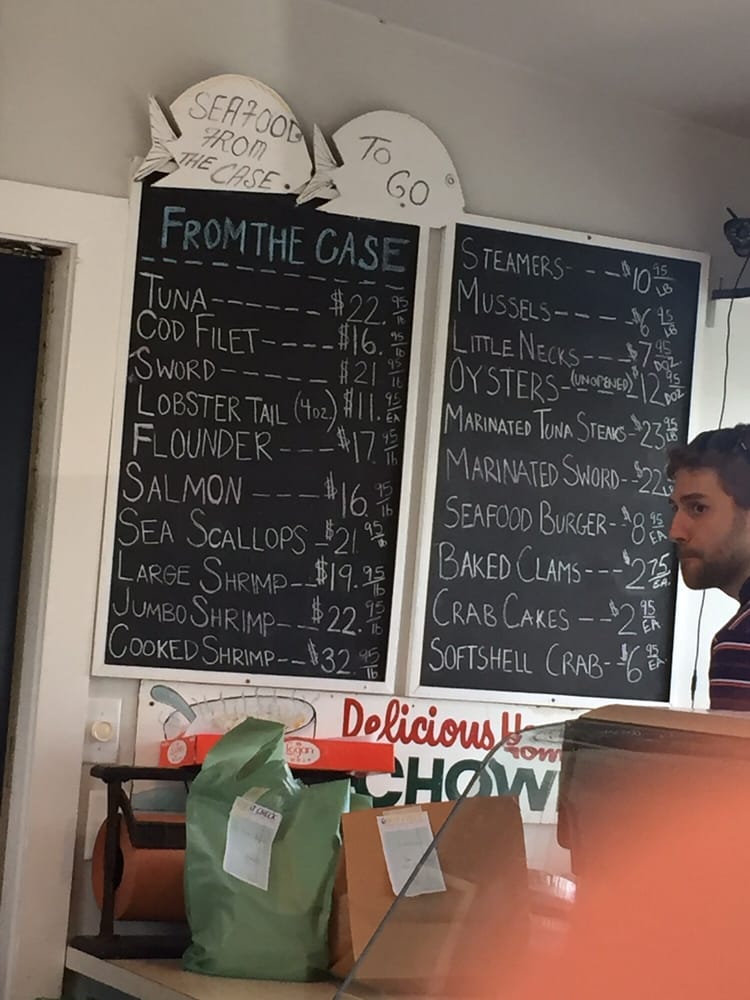 SEAFOOD
FROM
THE CASE
TO
GO
FROM THE CASE
TUNA------ $22.95 lb
COD FILET---- $16.95 lb
SWORD----- $21.95 lb
LOBSTER TAIL (4oz.) $11.95 EA
FLOUNDER--- $17.95 lb
SALMON---- $16.95 lb
SEA SCALLOPS - $21.95 lb
LARGE SHRIMP-- $19.95 lb
JUMBO SHRIMP-- $22.95 lb
COOKED SHRIMP-- $32.95 lb
STEAMERS--- $10.95 LB
MUSSELS--- $6.95 LB
LITTLE NECKS--- $7.95 DOZ
OYSTERS-(UNOPENED) $12.95 DOZ
MARINATED TUNA STEAKS- $23.95 LB
MARINATED SWORD-- $22
SEAFOOD BURGER-- $8.95 EA
BAKED CLAMS--- $2.75 EA.
CRAB CAKES -- $2.95 EA
SOFTSHELL CRAB-- $6.95 EA
Delicious
CHOW